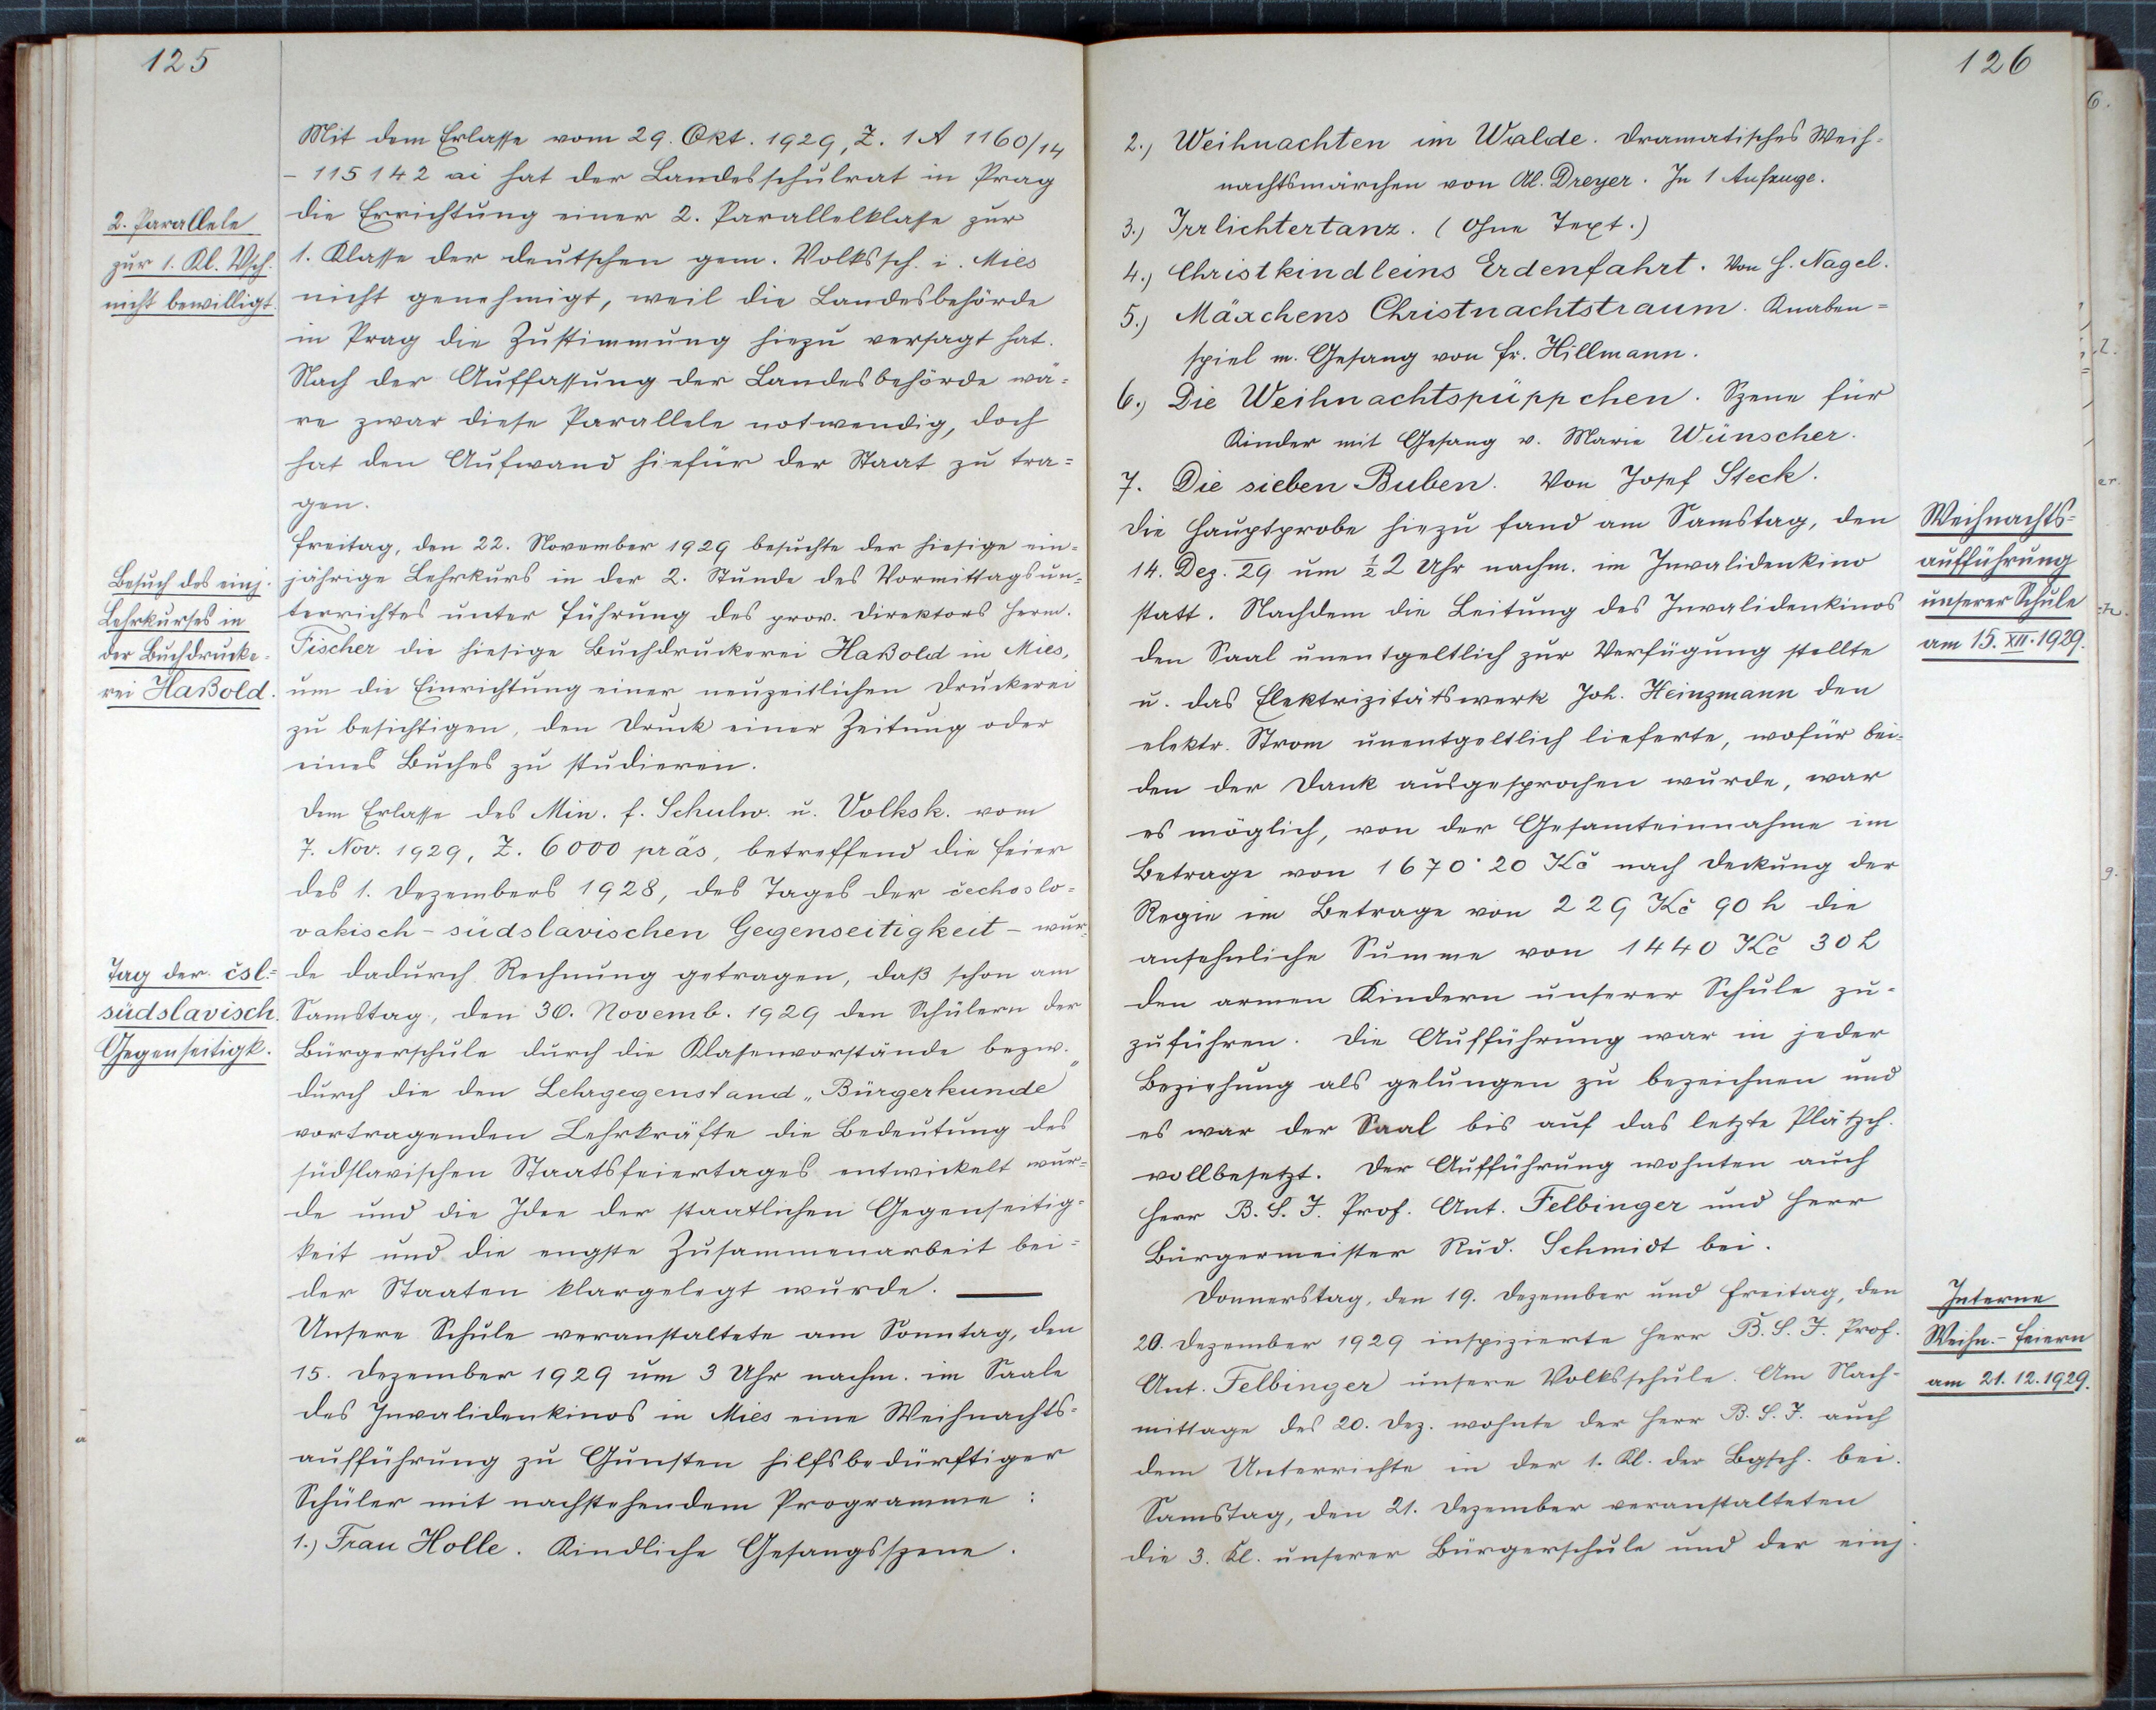 125
Mit dem Erlasse vom 29. Okt. 1929, Z. 1 A 1160/14
– 115142 ai hat der Landesschulrat in Prag
die Errichtung einer 2. Parallelklasse zur
1. Klasse der deutschen gem. Volkssch. i. Mies
nicht genehmigt, weil die Landesbehörde
in Prag die Zustimmung hiezu versagt hat.
Nach der Auffassung der Landesbehörde wä=
re zwar diese Parallele notwendig, doch
hat den Aufwand hiefür der Staat zu tra=
gen.
2. Parallele
zur 1. Kl. Vsch.
nicht bewilligt.
Freitag, den 22. November 1929 besuchte der hiesige ein=
jährige Lehrkurs in der 2. Stunde des Vormittagsun=
terrichtes unter Führung des prov. Direktors Herm.
Fischer die hiesige Buchdruckerei Haßold in Mies,
um die Einrichtung einer neuzeitlichen Druckerei
zu besichtigen, den Druck einer Zeitung oder
eines Buches zu studieren.
Besuch des einj.
Lehrkurses in
der Buchdrucke=
rei Haßold.
Dem Erlasse des Min. f. Schulw. u. Volksk. vom
7. Nov. 1929, Z. 6000 präs, betreffend die Feier
des 1. Dezembers 1928, des Tages der čechoslo=
vakisch-südslavischen Gegenseitigkeit – wur=
de dadurch Rechnung getragen, daß schon am
Samstag, den 30. Novemb. 1929 den Schülern der
Bürgerschule durch die Klassenvorstände bezw.
durch die den Lehrgegenstand „Bürgerkunde"
vortragenden Lehrkräfte die Bedeutung des
südslavischen Staatsfeiertages entwickelt wur=
de und die Idee der staatlichen Gegenseitig=
keit und die engste Zusammenarbeit bei=
der Staaten klargelegt wurde. —
Tag der čsl.=
südslavisch.
Gegenseitigk.
Unsere Schule veranstaltete am Sonntag, den
15. Dezember 1929 um 3 Uhr nachm. im Saale
des Invalidenkinos in Mies eine Weihnachts=
aufführung zu Gunsten hilfsbedürftiger
Schüler mit nachstehendem Programme:
1.) Frau Holle. Kindliche Gesangsszene.
126
2.) Weihnachten im Walde. Dramatisches Weih=
nachtsmärchen von Al. Dreyer. In 1 Aufzuge.
3.) Irrlichtertanz. (Ohne Text.)
4.) Christkindleins Erdenfahrt. Von H. Nagel.
5.) Mäxchens Christnachtstraum. Knaben=
spiel m. Gesang von Fr. Hillmann.
6.) Die Weihnachtspüppchen. Szene für
Kinder mit Gesang v. Marie Wünscher.
7. Die sieben Buben. Von Josef Steck.
Die Hauptprobe hiezu fand am Samstag, den
14. Dez. 29 um ½ 2 Uhr nachm. im Invalidenkino
statt. Nachdem die Leitung des Invalidenkinos
den Saal unentgeltlich zur Verfügung stellte
u. das Elektrizitätswerk Joh. Heinzmann den
elektr. Strom unentgeltlich lieferte, wofür bei=
den der Dank ausgesprochen wurde, war
es möglich, von der Gesamteinnahme im
Betrage von 1670·20 Kč nach Deckung der
Regie im Betrage von 229 Kč 90 h die
ansehnliche Summe von 1440 Kč 30 h
den armen Kindern unserer Schule zu=
zuführen. Die Aufführung war in jeder
Beziehung als gelungen zu bezeichnen und
es war der Saal bis auf das letzte Plätzch.
vollbesetzt. Der Aufführung wohnten auch
Herr B. S. I. Prof. Ant. Felbinger und Herr
Bürgermeister Rud. Schmidt bei.
Weihnachts=
aufführung
unserer Schule
am 15. XII. 1929.
Donnerstag, den 19. Dezember und Freitag, den
20. Dezember 1929 inspizierte Herr B. S. I. Prof.
Ant. Felbinger unsere Volksschule. Am Nach=
mittage des 20. Dez. wohnte der Herr B. S. I. auch
dem Unterrichte in der 1. Kl. der Bgsch. bei.
Samstag, den 21. Dezember veranstalteten
die 3. Kl. unserer Bürgerschule und der einj.
Interne
Weihn.-Feiern
am 21.12.1929.